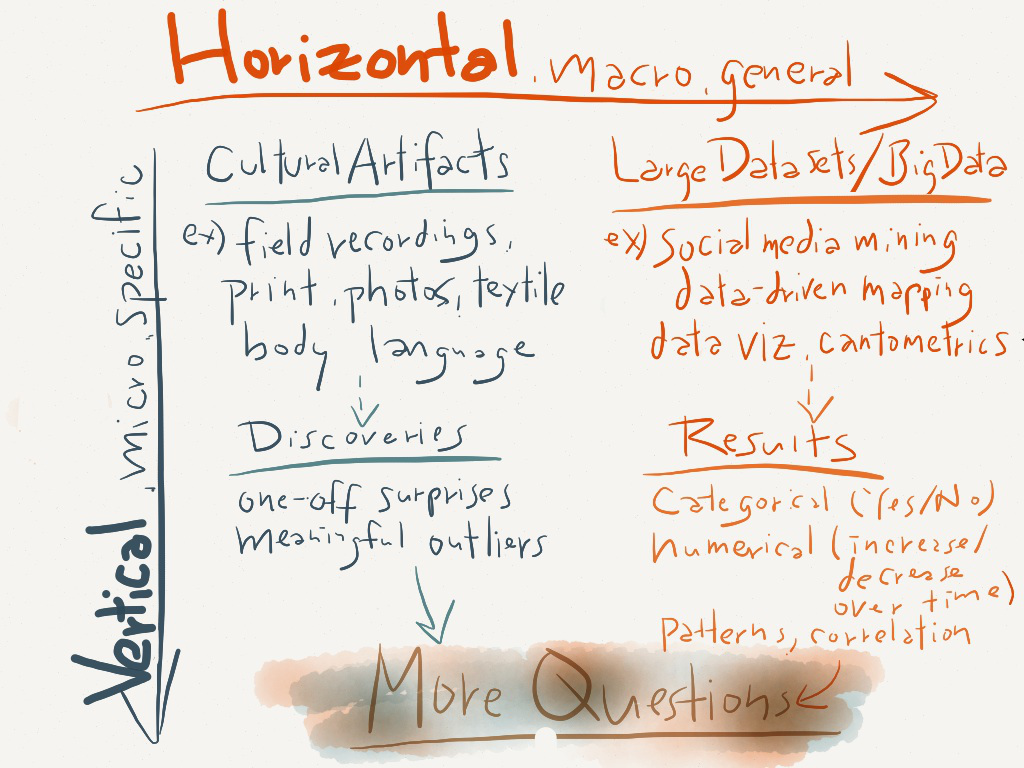 Horizontal, macro, general
Vertical, micro, Specific
Cultural Artifacts
ex) field recordings,
print, photos, textile
body language
Discoveries
one-off surprises
meaningful outliers
Large Data sets/Big Data
ex) Social media mining
data-driven mapping
data viz, cantometrics
Results
Categorical (Yes/No)
Numerical (increase/
decrease
over time)
Patterns, correlation
More Questions